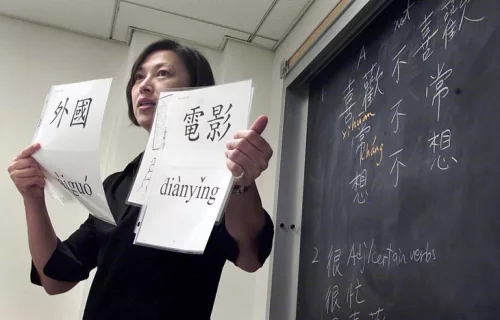 外國
aiguó
電影
diànyǐng
A not
喜歡 不 喜歡
xǐhuān
常 不 常
cháng
想 不 想
2 很 Adj/certain verbs
很忙